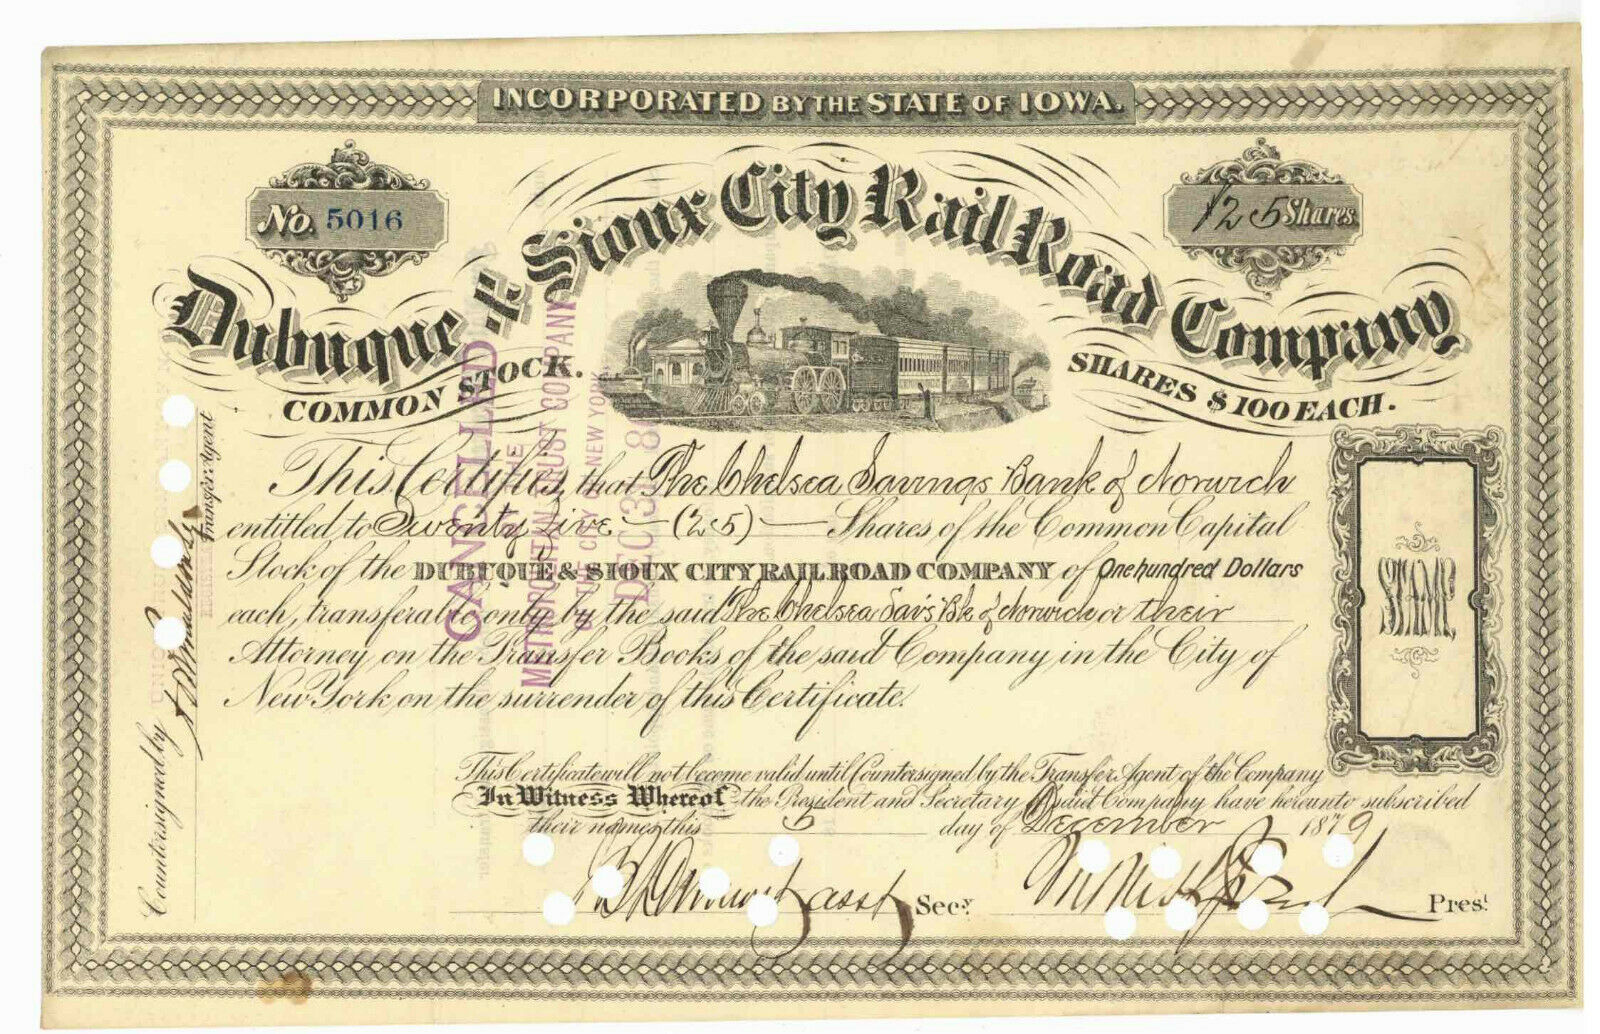 INCORPORATED BY THE STATE OF IOWA.
No. 5016
25 Shares
Dubuque & Sioux City Rail Road Company
COMMON STOCK.
SHARES $100 EACH.
This Certifies, that The Chelsea Savings Bank of Norwich
entitled to Twenty five — (25) — Shares of the Common Capital
Stock of the DUBUQUE & SIOUX CITY RAILROAD COMPANY of One hundred Dollars
each, transferable only by the said The Chelsea Sav's Bk of Norwich or their
Attorney, on the Transfer Books of the said Company in the City of
New York, on the surrender of this Certificate.
This Certificate will not become valid until Countersigned by the Transfer Agent of the Company
In Witness Whereof the President and Secretary of said Company have hereunto subscribed
their names this 5 day of December 1879
asst Secy.
Prest.
STAMP.
Countersigned by
Transfer Agent
CANCELLED
BY THE
METROPOLITAN TRUST COMPANY
OF THE CITY OF NEW YORK
DEC 3 8